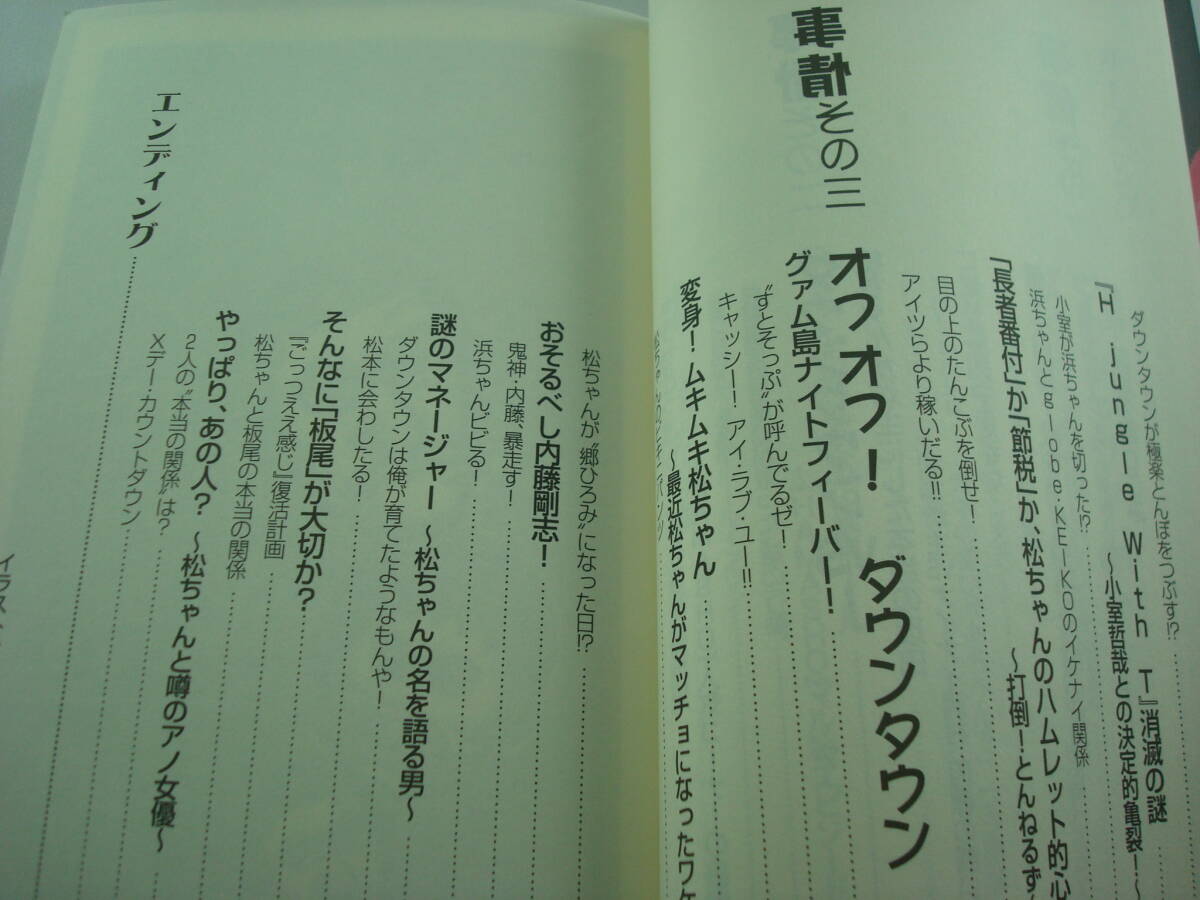 ダウンタウンが極楽とんぼをつぶす!?
『H jungle With T』消滅の謎
～小室哲哉との決定的亀裂！～
小室が浜ちゃんを切った!?
浜ちゃんとglobe・KEIKOのイケナイ関係
「長者番付」か「節税」か、松ちゃんのハムレット的心
～打倒！とんねるず
目の上のたんこぶを倒せ！
アイツらより稼いだる!!
事情その三 オフオフ！ ダウンタウン
グァム島ナイトフィーバー！
“ずとそっぷ”が呼んでるゼ！
キャッシー！ アイ・ラブ・ユー!!
変身！ムキムキ松ちゃん
～最近松ちゃんがマッチョになったワケ
松ちゃんが“郷ひろみ”になった日!?
おそるべし内藤剛志！
鬼神・内藤、暴走す！
浜ちゃんビビる！
謎のマネージャー ～松ちゃんの名を語る男～
ダウンタウンは俺が育てたようなもんや！
松本に会わしたる！
そんなに「板尾」が大切か？
『ごっつええ感じ』復活計画
松ちゃんと板尾の本当の関係
やっぱり、あの人？ ～松ちゃんと噂のアノ女優～
2人の“本当の関係”は？
Xデー・カウントダウン
エンディング
イラスト